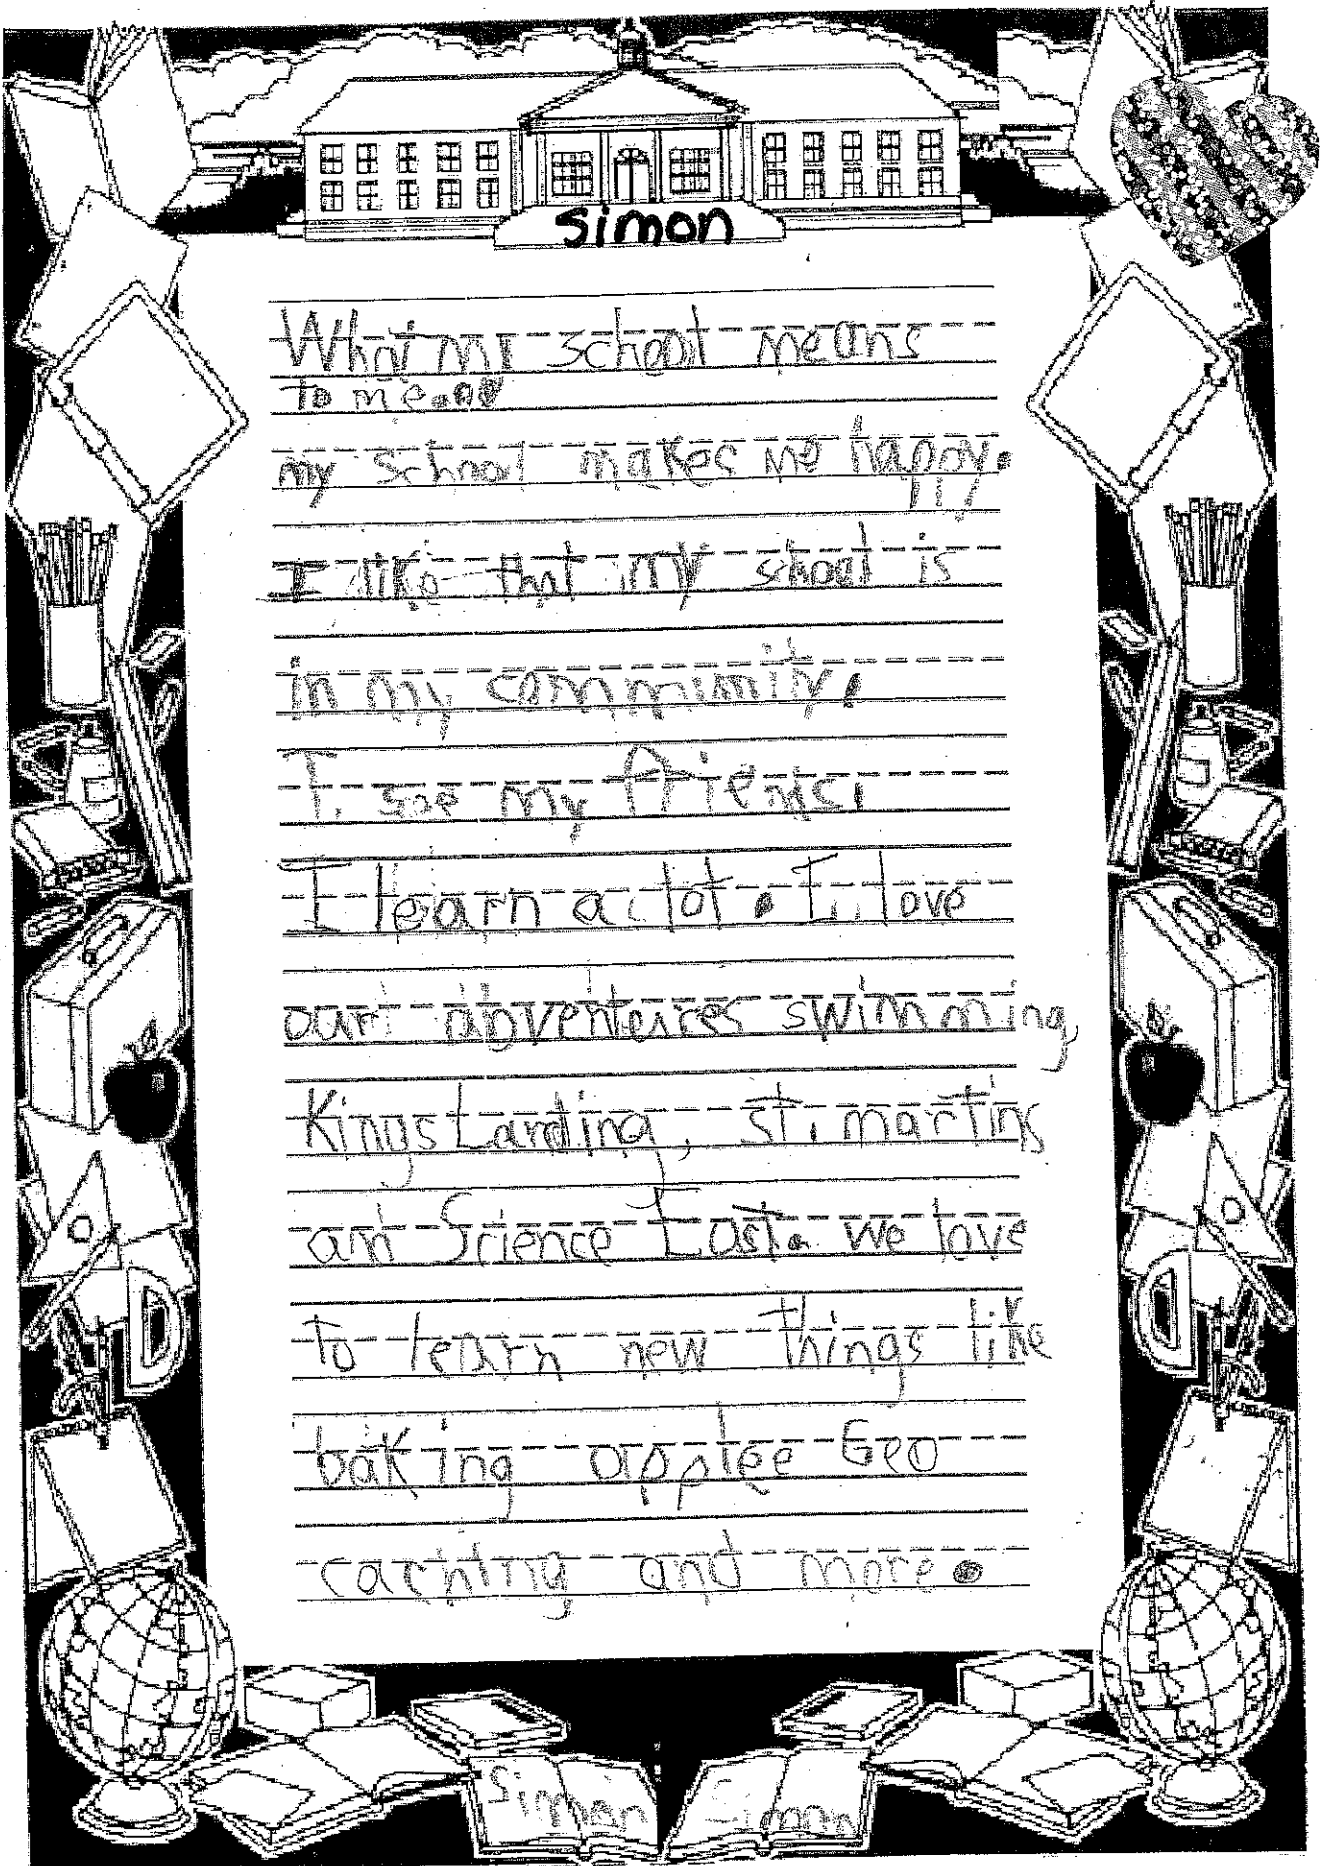 simon
What my school means
to me...
my school makes me happy.
I like that my school is
in my community.
I see my friends.
I learn a lot. I love
our adventeires swimming,
Kings Landing, st. martins
and Science East. we love
to learn new things like
baking applee Geo
caching and more.
Simon Simon